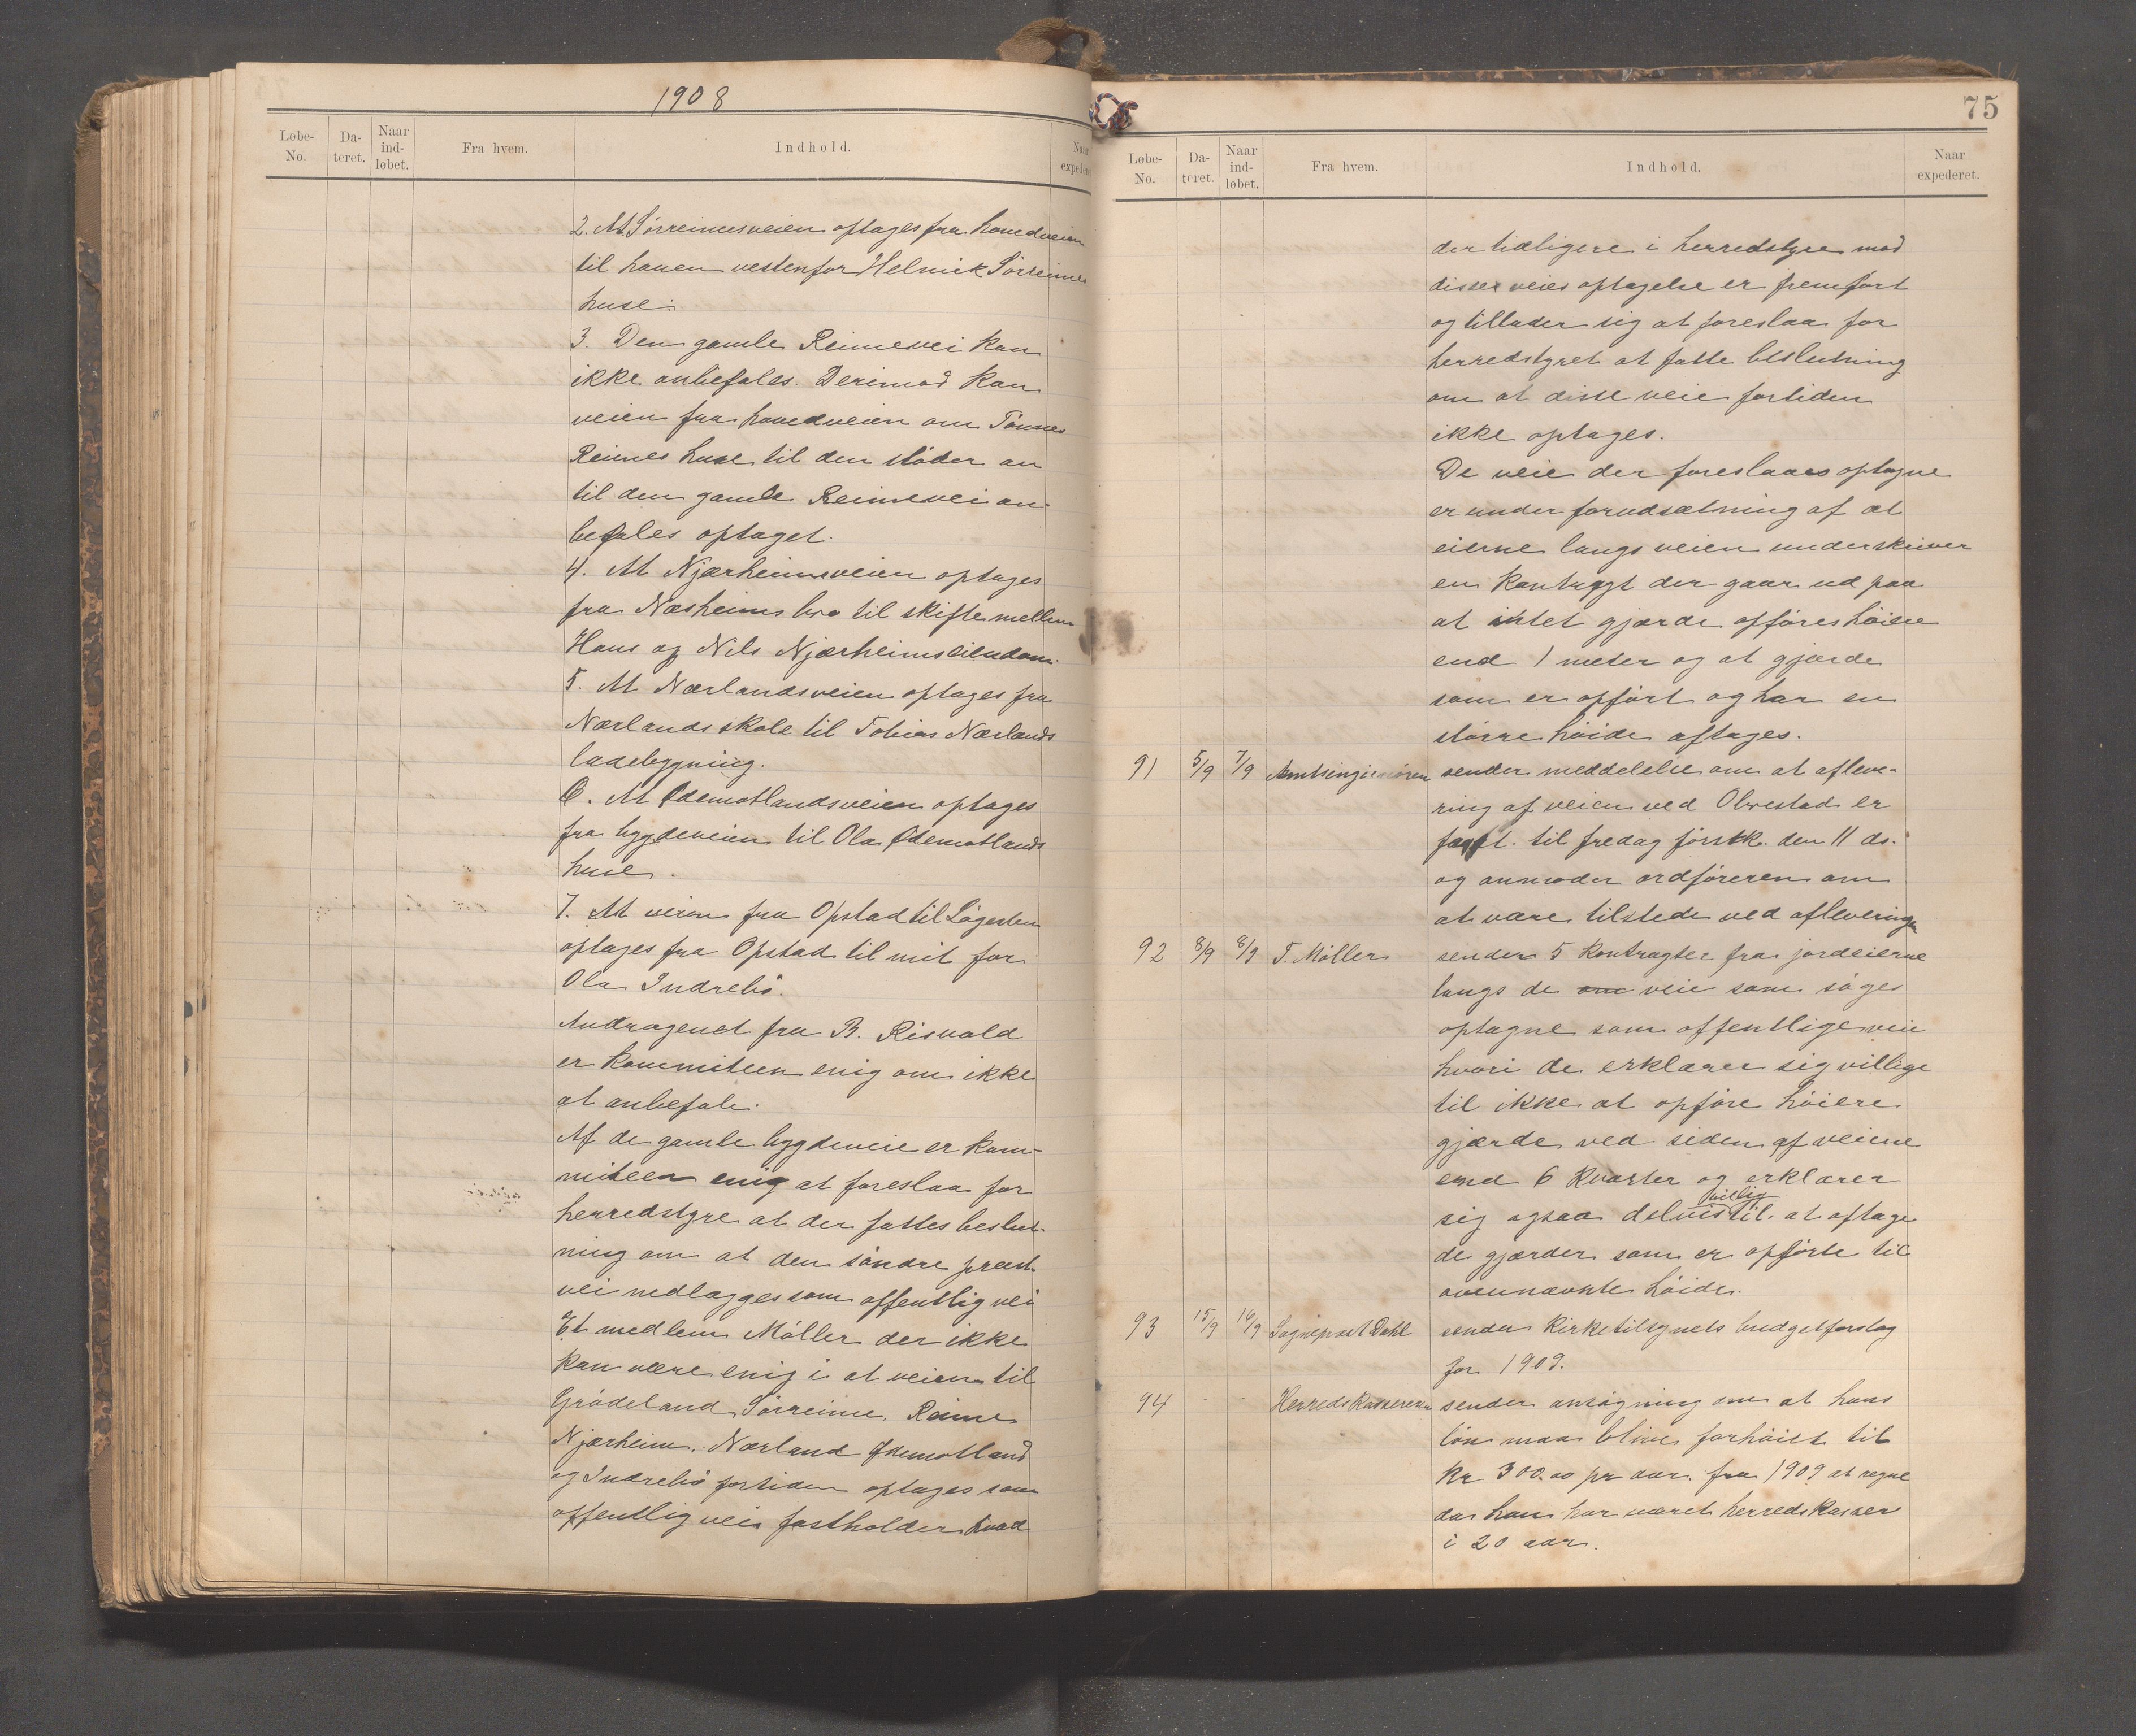 1908
Løbe-No. Da-teret. Naar ind-løbet. Fra hvem. Indhold. Naar expederet
2. At Sørreimesveien optages fra hovedveien
til haven vestenfor Helmik Sørreimes
huse.
3. Den gamle Reimevei kan
ikke anbefales. Derimod kan
veien fra hovedveien om Tønnes
Reimes huse til den støder an
til den gamle Reimevei an-
befales optaget.
4. At Njærheimsveien optages
fra Næsheims bro til skifte mellem
Hans og Nils Njærheims eiendom.
5. At Nærlandsveien optages fra
Nærlands skole til Tobias Nærlands
ladebygning.
6. At Ødemotlandsveien optages
fra bygdeveien til Ola Ødemotlands
huse.
7. At veien fra Opstad til
optages fra Opstad til mit for
Ola Indrebø.
Andragenet fra B. Risvold
er kommiteen enig om ikke
at anbefale.
Af de gamle bygdeveie er kom-
miteen enig at foreslaa for
herredstyre at der fattes beslut-
ning om at den søndre præst
vei nedlægges som offentlig vei
Et medlem Møller der ikke
kan være enig i at veien til
Grødeland, Sørreime, Reime
Njærheim, Nærland Ødemotland
og Indrebø fortiden optages som
offentlig vei fastholder hvad
75
Løbe-No. Da-teret. Naar ind-løbet. Fra hvem. Indhold. Naar expederet.
der tidligere i herredstyre mod
disse veies optagelse er fremført
og tillader sig at foreslaa for
herredstyret at fatte beslutning
om at disse veie fortiden
ikke optages.
De veie der foreslaaes optagne
er under forudsætning af at
eierne langs veien underskriver
en kontragt der gaar ud paa
at intet gjærde opføres høiere
end 1 meter og at gjærde
som er opført og har en
større høide aftages.
91 5/9 7/9 Amtsingeniøren sender meddelelse om at afleve-
ring af veien ved Obrestad er
fastt. til fredag førstk. den 11 ds.
og anmoder ordføreren om
at være tilstede ved afleveringen
92 8/9 8/9 T. Møller sender 5 kontragter fra jordeierne
langs de om veie som søges
optagne som offentlige veie
hvori de erklærer sig villige
til ikke at opføre høiere
gjærde ved siden af veiene
end 6 kvarter og erklærer
sig ogsaa delvis villig til at aftage
de gjærder som er opførte til
ovennævnte høide.
93 15/9 16/9 Sogneprest Dahl sender Kirketilsynets budgetforslag
for 1909.
94 Herredskassereren sender ansøgning om at hans
løn maa blive forhøiet til
Kr 300.00 pr aar. fra 1909 at regne
da han har været herredskasser
i 20 aar.